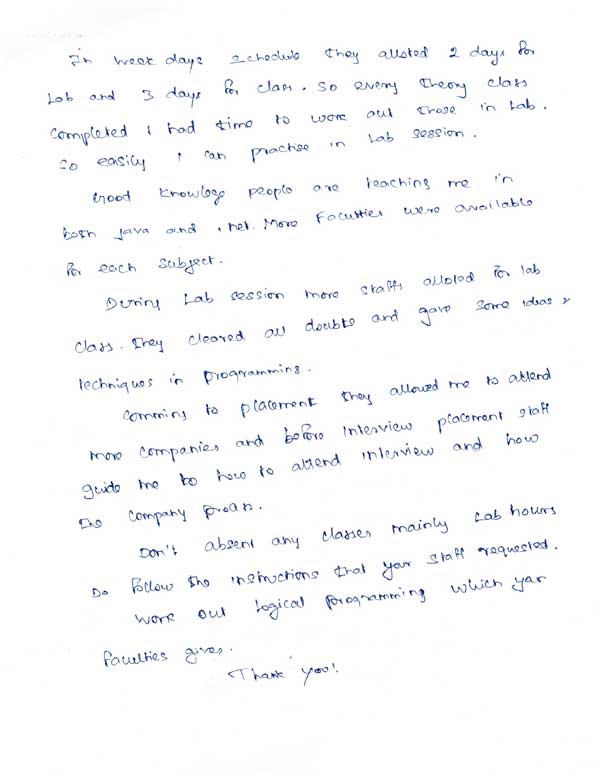 In week days schedule they alloted 2 days for
Lab and 3 days for class. So every theory class
completed I had time to work out those in Lab.
So easily I can practise in Lab session.
Good knowlege people are teaching me in
both java and .net. More Faculties were available
for each subject.
During Lab session more staffs alloted for lab
class. They cleared all doubts and gave some ideas &
techniques in programming.
Comming to placement they allowed me to attend
more companies and before interview placement staff
guide me to how to attend interview and how
the company
Don't absent any classes mainly Lab hours
Do follow the instructions that your staff requested.
Work out logical programming which your
faculties gives.
Thank you!